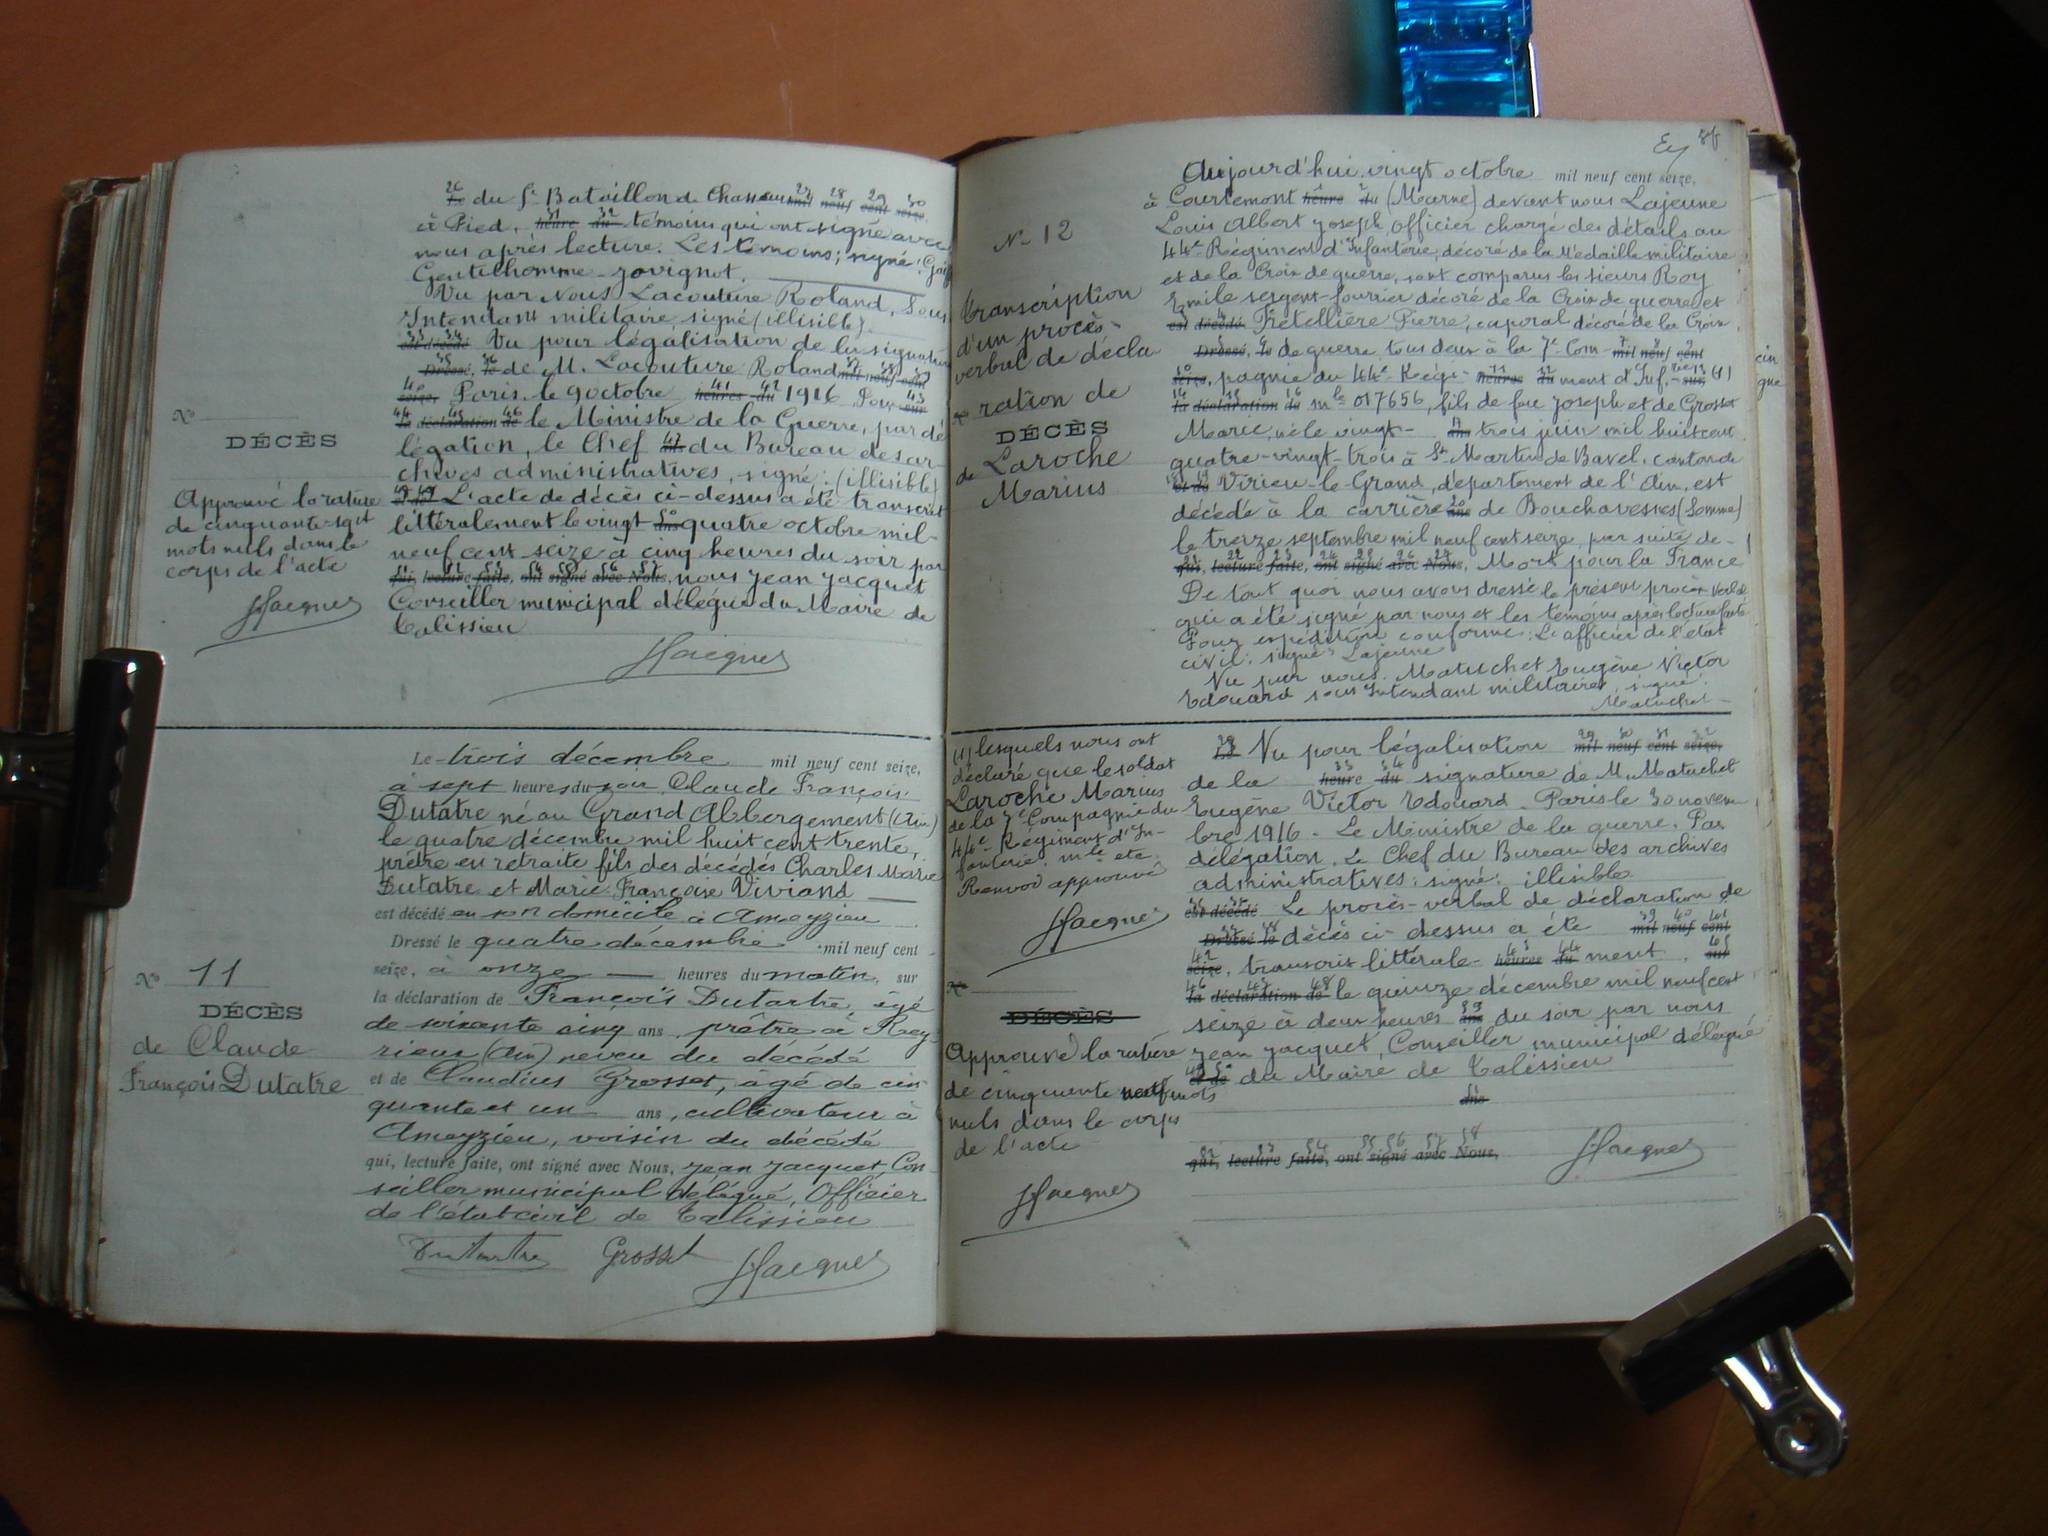 du 5e Bataillon de Chasseurs mil neuf cent seize
à Pied, heure du témoins qui ont signé avec
nous après lecture. Les témoins; signé:
Gentilhomme - Jovignot.
Vu par Nous Lacouture Roland, Sous
Intendant militaire signé (illisible).
est décédé Vu pour légalisation de la signature
Dressé, le de M. Lacouture Roland mil neuf cent
seize, Paris, le 9 octobre heures du 1916 Pour sur
la déclaration de le Ministre de la Guerre, par dé
légation, le Chef ans du Bureau des ar-
chives administratives, signé: (illisible)
et de L'acte de décès ci-dessus a été transcrit
littéralement le vingt ans quatre octobre mil-
neuf cent seize à cinq heures du soir par
qui, lecture faite, ont signé avec Nous, nous Jean Jacquet
Conseiller municipal délégué du Maire de
Talissieu
JJacquet
No
DÉCÈS
Approuvé la rature
de cinquante-sept
mots nuls dans le
corps de l'acte
JJacquet
No 11
DÉCÈS
de Claude
François Dutatre
Le trois décembre mil neuf cent seize,
à sept heures du soir, Claude François
Dutatre né au Grand Abbergement (Ain)
le quatre décembre mil huit cent trente,
prêtre en retraite fils des décédés Charles Marie
Dutatre et Marie Françoise Viviand
est décédé en son domicile à Ameyzieu
Dressé le quatre décembre mil neuf cent
seize, à onze heures du matin, sur
la déclaration de François Dutartre, âgé
de soixante cinq ans, prêtre à Rey-
rieux (Ain) neveu du décédé
et de Claudius Grosset, âgé de cin
quante et un ans, cultivateur à
Ameyzieu, voisin du décédé
qui, lecture faite, ont signé avec Nous, Jean Jacquet, Con-
seiller municipal délégué, Officier
de l'état civil de Talissieu
Dutartre Grosset JJacquet
No 12
Transcription
d'un procès-
verbal de décla
ration de
DÉCÈS
de Laroche
Marius
Aujourd'hui vingt octobre mil neuf cent seize,
à Courtemont heure du (Marne) devant nous Lajeune
Louis Albert Joseph officier chargé des détails au
44e Régiment d'Infanterie, décoré de la Médaille militaire
et de la Croix de guerre, sont comparus les sieurs Roy
Emile sergent-fourrier décoré de la Croix de guerre et
est décédé Fretellière Pierre, caporal décoré de la Croix
Dressé, le de guerre, tous deux à la 7e Com- mil neuf cent
seize, pagnie du 44e Régi- heures du ment d'Inf.rie sur, (1)
la déclaration de mle 017656, fils de feu Joseph et de Grosset
Marie, né le vingt- ans trois juin mil huit cent
quatre-vingt-trois à St Martin de Bavel, canton de
et de Virieu-le-Grand, département de l'Ain, est
décédé à la carrière ans de Bouchavesnes (Somme)
le treize septembre mil neuf cent seize, par suite de -
qui, lecture faite, ont signé avec Nous, Mort pour la France
De tout quoi nous avons dressé le présent procès verbal
qui a été signé par nous et les témoins après lecture faite
Pour expédition conforme: L'officier de l'état
civil: signé: Lajeune
Vu par nous Matuchet Eugène Victor
Edouard sous Intendant militaire, signé:
Matuchet
(1) lesquels nous ont
déclaré que le soldat
Laroche Marius
de la 7e Compagnie du
44e Régiment d'In-
fanterie, mle etc.
Renvoi approuvé
JJacquet
No
DÉCÈS
Approuvé la rature
de cinquante neuf mots
nuls dans le corps
de l'acte
JJacquet
Le Vu pour légalisation mil neuf cent seize,
de la heure du signature de M. Matuchet
Eugène Victor Edouard - Paris le 30 novem
bre 1916 - Le Ministre de la guerre, Par
délégation, Le Chef du Bureau des archives
administratives: signé: illisible
est décédé Le procès-verbal de déclaration de
Dressé le décès ci-dessus a été mil neuf cent
seize, transcris littérale- heures du ment, sur
la déclaration de le quinze décembre mil neuf cent
seize à deux heures ans du soir par nous
Jean Jacquet, Conseiller municipal délégué
et de du Maire de Talissieu
ans
qui, lecture faite, ont signé avec Nous, JJacquet